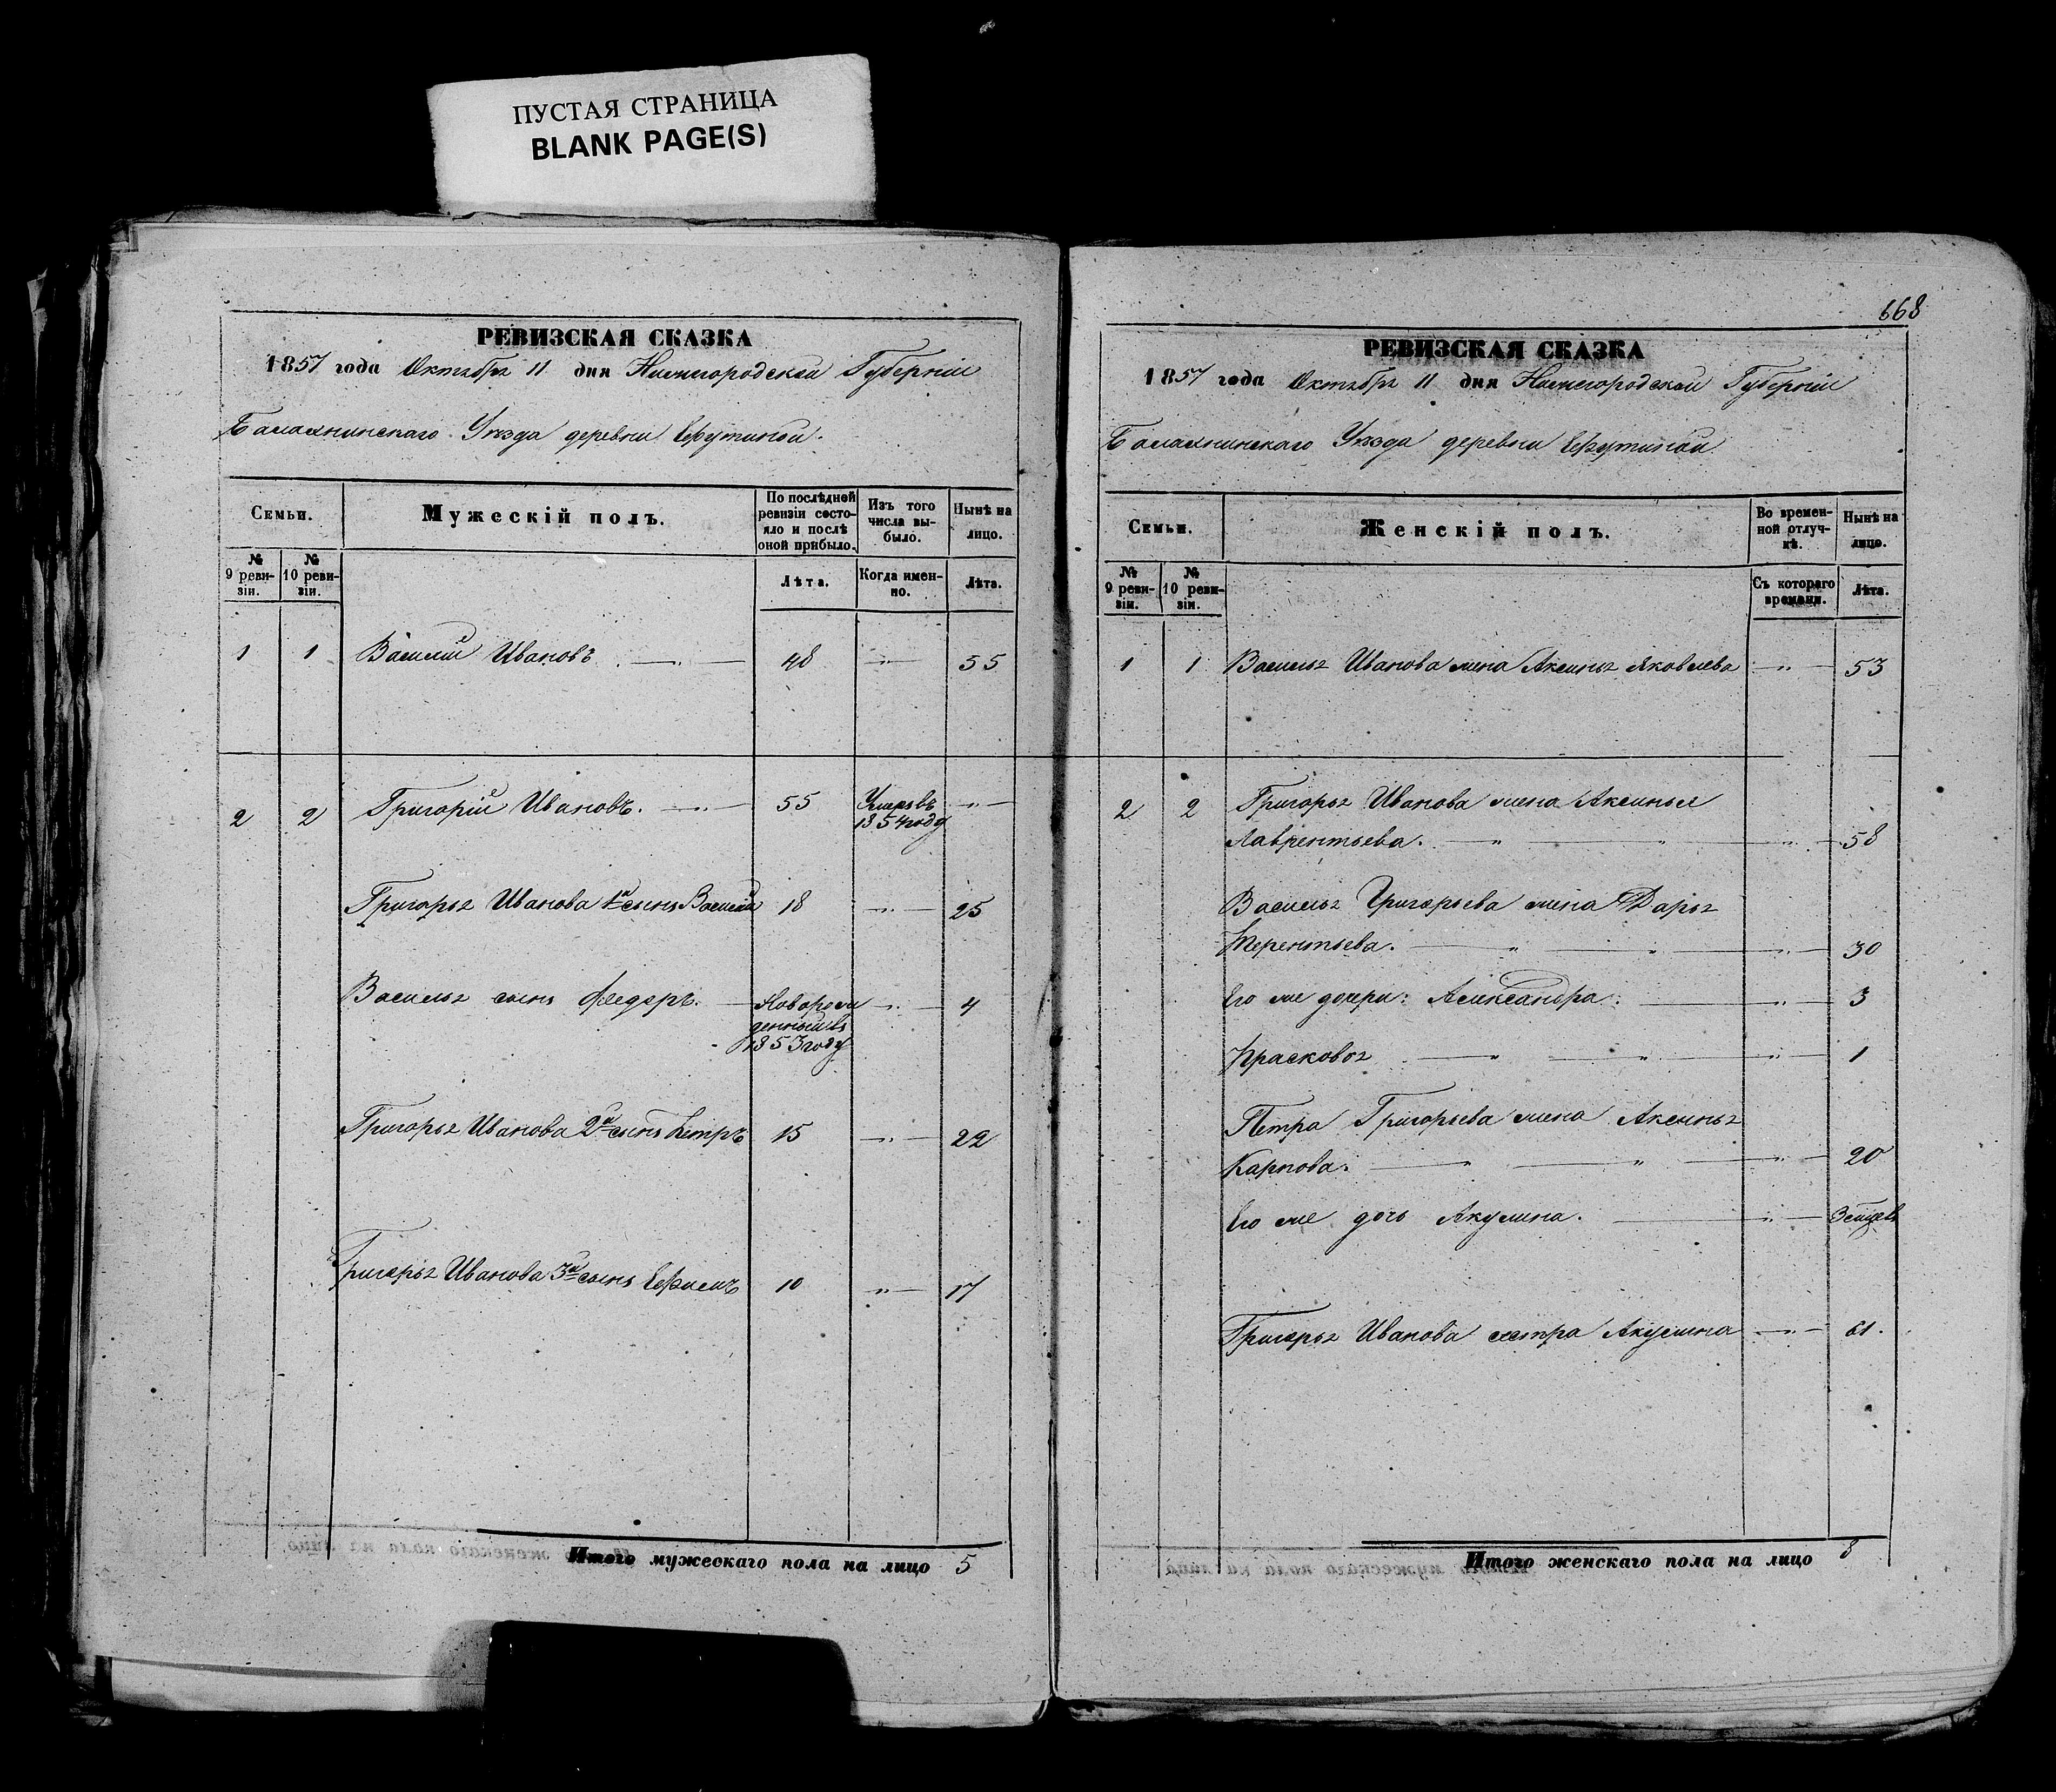 ПУСТАЯ СТРАНИЦА
BLANK PAGE(S)
РЕВИЗСКАЯ СКАЗКА
1857 года Октября 11 дня Нижегородской Губерніи
Балахнинскаго Уѣзда деревни Ефутиной.
Семьи.
Мужескій полъ.
По послѣдней ревизіи состояло и послѣ оной прибыло.
Изъ того числа выбыло.
Нынѣ на лицо.
№ 9 ревизіи.
№ 10 ревизіи.
Лѣта.
Когда именно.
Лѣта.
1 1 Василій Ивановъ. — " — 48 — " — 55
2 2 Григорій Ивановъ. — " — 55 Умеръ въ 1854 году — " —
Григорья Иванова 1й сынъ Василій 18 — " — 25
Василья сынъ Федоръ. — Новорожденный въ 1853 году — " — 4
Григорья Иванова 2й сынъ Петръ 15 — " — 22
Григорья Иванова 3й сынъ Ефимъ 10 — " — 17
Итого мужескаго пола на лицо 5
668
РЕВИЗСКАЯ СКАЗКА
1857 года Октября 11 дня Нижегородской Губерніи
Балахнинскаго Уѣзда деревни Ефутиной
Семьи.
Женскій полъ.
Во временной отлучкѣ.
Нынѣ на лицо.
№ 9 ревизіи.
№ 10 ревизіи.
Съ котораго времени.
Лѣта.
1 1 Василья Иванова жена Аксинья Яковлева — " — 53
2 2 Григорья Иванова жена Аксинья
Лаврентьева. — " — " — " — 58
Василья Григорьева жена Дарья
Терентьева. — " — " — " — 30
Его же дочери: Александра. — " — 3
Прасковья — " — " — " — 1
Петра Григорьева жена Аксинья
Карпова. — " — " — " — 20
Его же дочь Акулина. — " — 3 месяцевъ
Григорья Иванова сестра Акулина — " — 61.
Итого женскаго пола на лицо 8